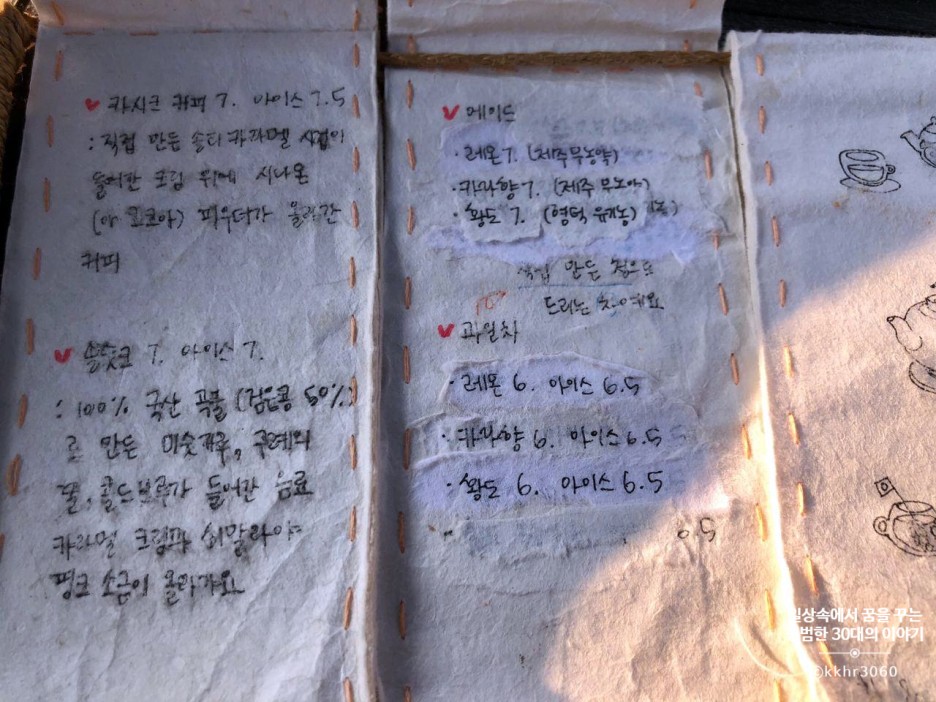 카시크 커피 7. 아이스 7.5
: 직접 만든 솔티카라멜 시럽이
들어간 크림 위에 시나몬
(아 코코아) 파우더가 올라간
커피
7. 아이스 7.
: 100% 국산 곡물 (검은콩 50%)
로 만든 미숫가루,
꿀, 콜드브루가 들어간 음료
카라멜 크림과 히말라야
핑크 소금이 올라가요
에이드
· 레몬 7. (제주무농약)
· 카라향 7. (제주 무농약)
· 황도 7. (영덕 유기농)
직접 만든 청으로
드리는 차예요
과일차
· 레몬 6. 아이스 6.5
· 카라향 6. 아이스 6.5
· 황도 6. 아이스 6.5
6.5
일상속에서 꿈을 꾸는
평범한 30대의 이야기
@kkhr3060